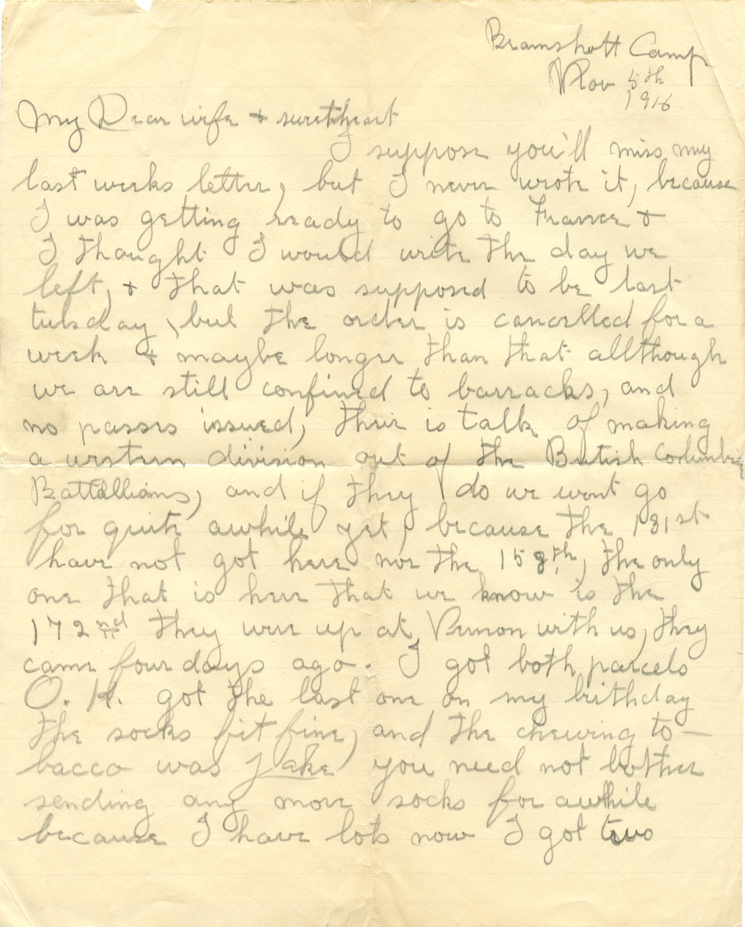 Bramshott Camp
Nov 5th
1916
My Dear wife & sweetheart
I suppose you'll miss my
last weeks letter, but I never wrote it, because
I was getting ready to go to France &
I thought I would write the day we
left, & that was supposed to be last
tusday, but the order is cancelled for a
week & maybe longer than that allthough
we are still confined to barracks, and
no passes issued, their is talk of making
a western division out of the British Columbia
Battallians, and if they do we wont go
for quite awhile yet, because the 131st
have not got here nor the 158th, the only
one that is here that we know is the
172nd they were up at Vernon with us, they
came four days ago. I got both parcels
O.K. got the last one on my birthday
the socks fit fine, and the chewing to-
bacco was Jake, you need not bother
sending any more socks for awhile
because I have lots now I got two